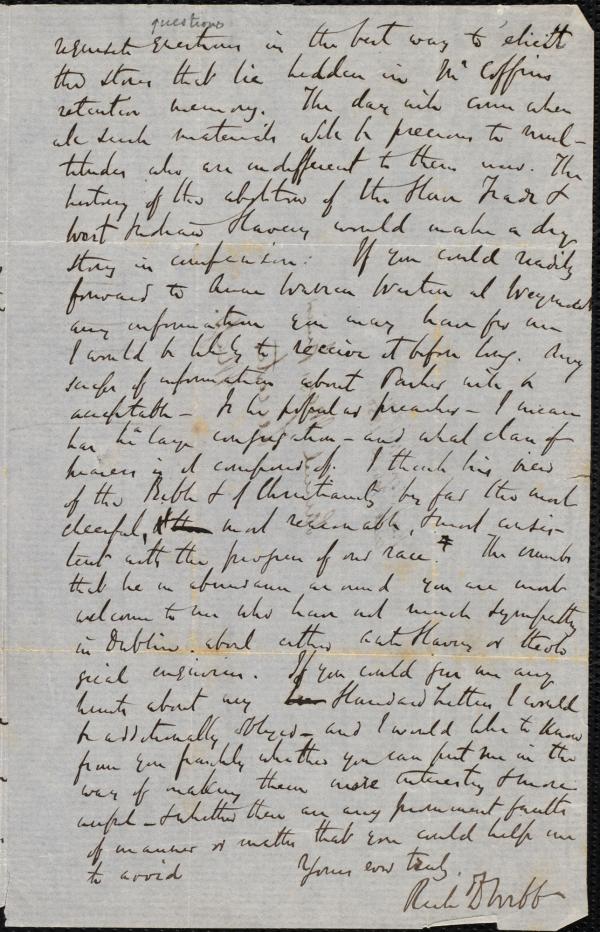 questions
request questions in the best way to elicit
the stores that lie hidden in Mr Coffins
retentive memory. The day will come when
all such materials will be precious to mul-
titudes who are indifferent to them now. The
history of the abolition of the Slave Trade &
West Indian Slavery would make a dry
story in comparison. If you could readily
forward to Anne Warren Weston at Weymouth
any information you may have for me
I would be likely to receive it before long. Any
scraps of information about Parker will be
acceptable - Is he popular as preacher - I mean
has he a large congregation - and what class of
hearers is it composed of. I think his view
of the Bible & of Christianity by far the most
cheerful, most reasonable, & most consis-
tent with the progress of our race.* The crumbs
that lie in abundance around you are most
welcome to me who have not much sympathy
in Dublin about either anti Slavery or theolo
gical enquiries. If you could give me any
hints about my Standard Letters I would
be additionally obliged - and I would like to know
from you frankly whether you can put me in the
way of making them more interesting & more
useful - & whether there are any prominent faults
of manner or matter that you could help me
to avoid Yours ever truly
Richd D Webb